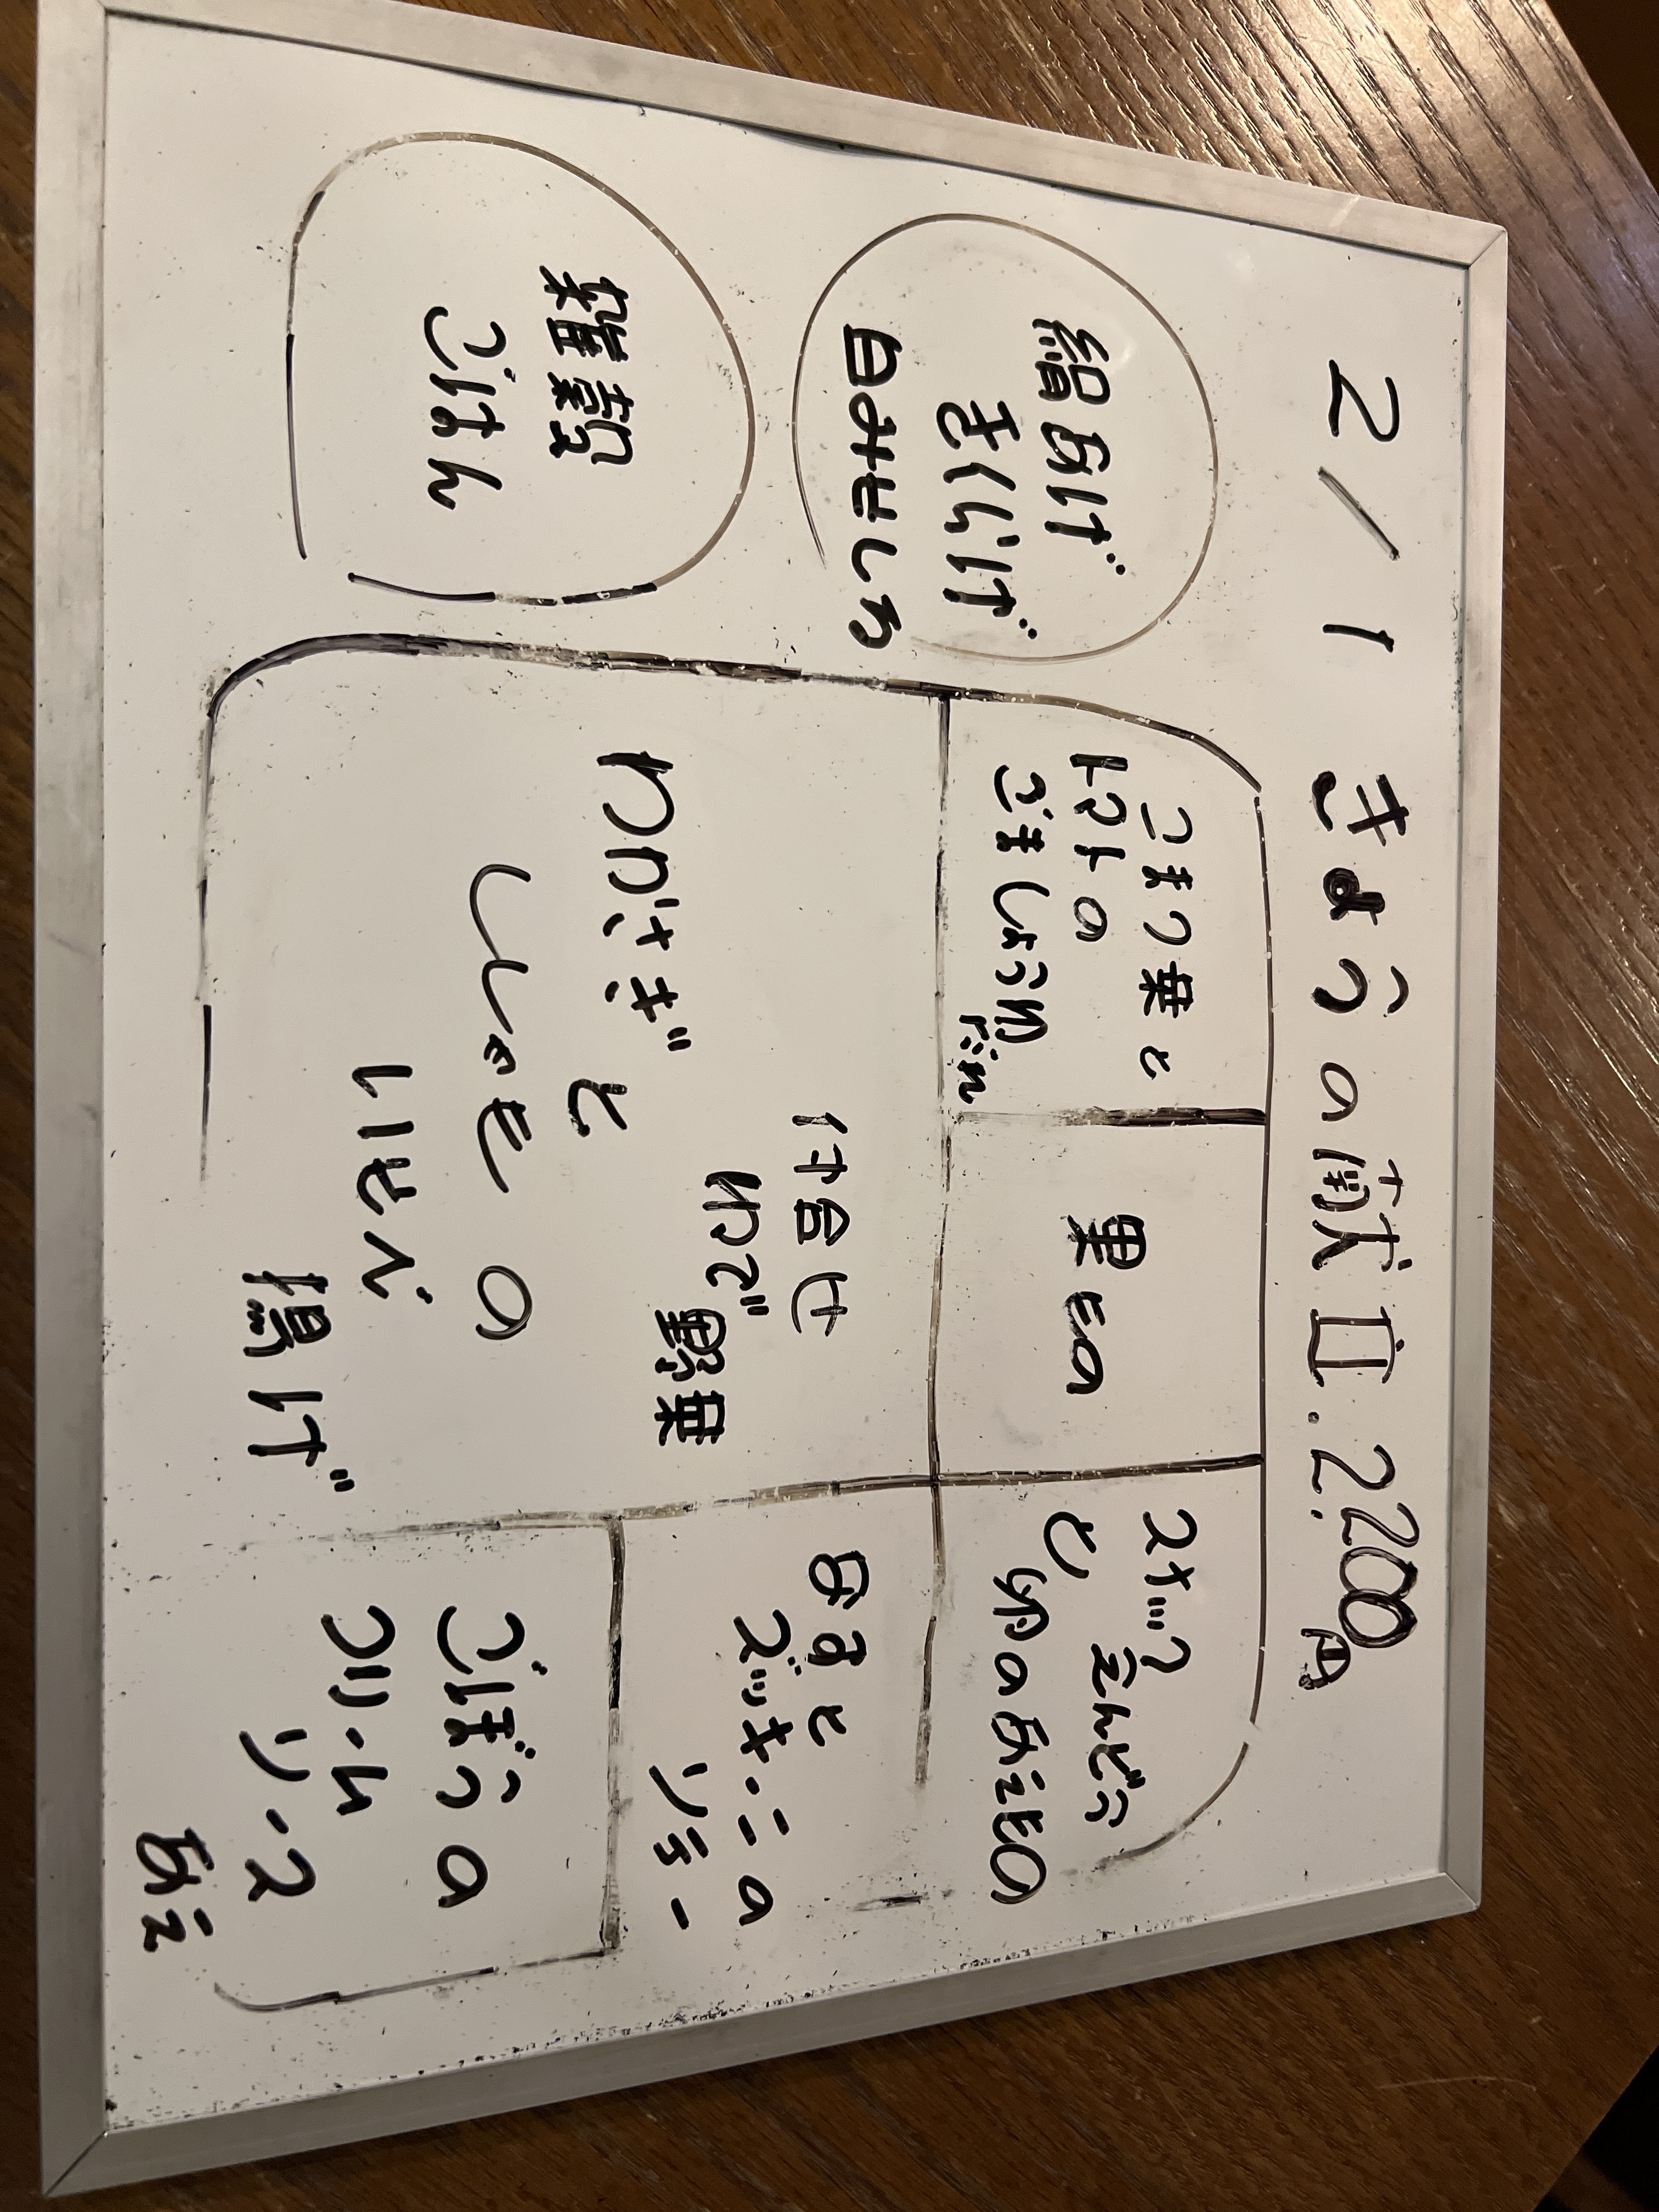 2/1 きょうの献立.2200円
絹あげ
きくらげ
白みそしる
雑穀
ごはん
こまつ菜と
トマトの
ごましょう油
だれ
果もの
スナップ
えんどう
と卵のあえもの
付合せ
ゆで野菜
わかさぎ
と
ししゃもの
いそべ
揚げ
なすと
ズッキーニの
ソテー
ごぼうの
クリーム
ソース
あえ